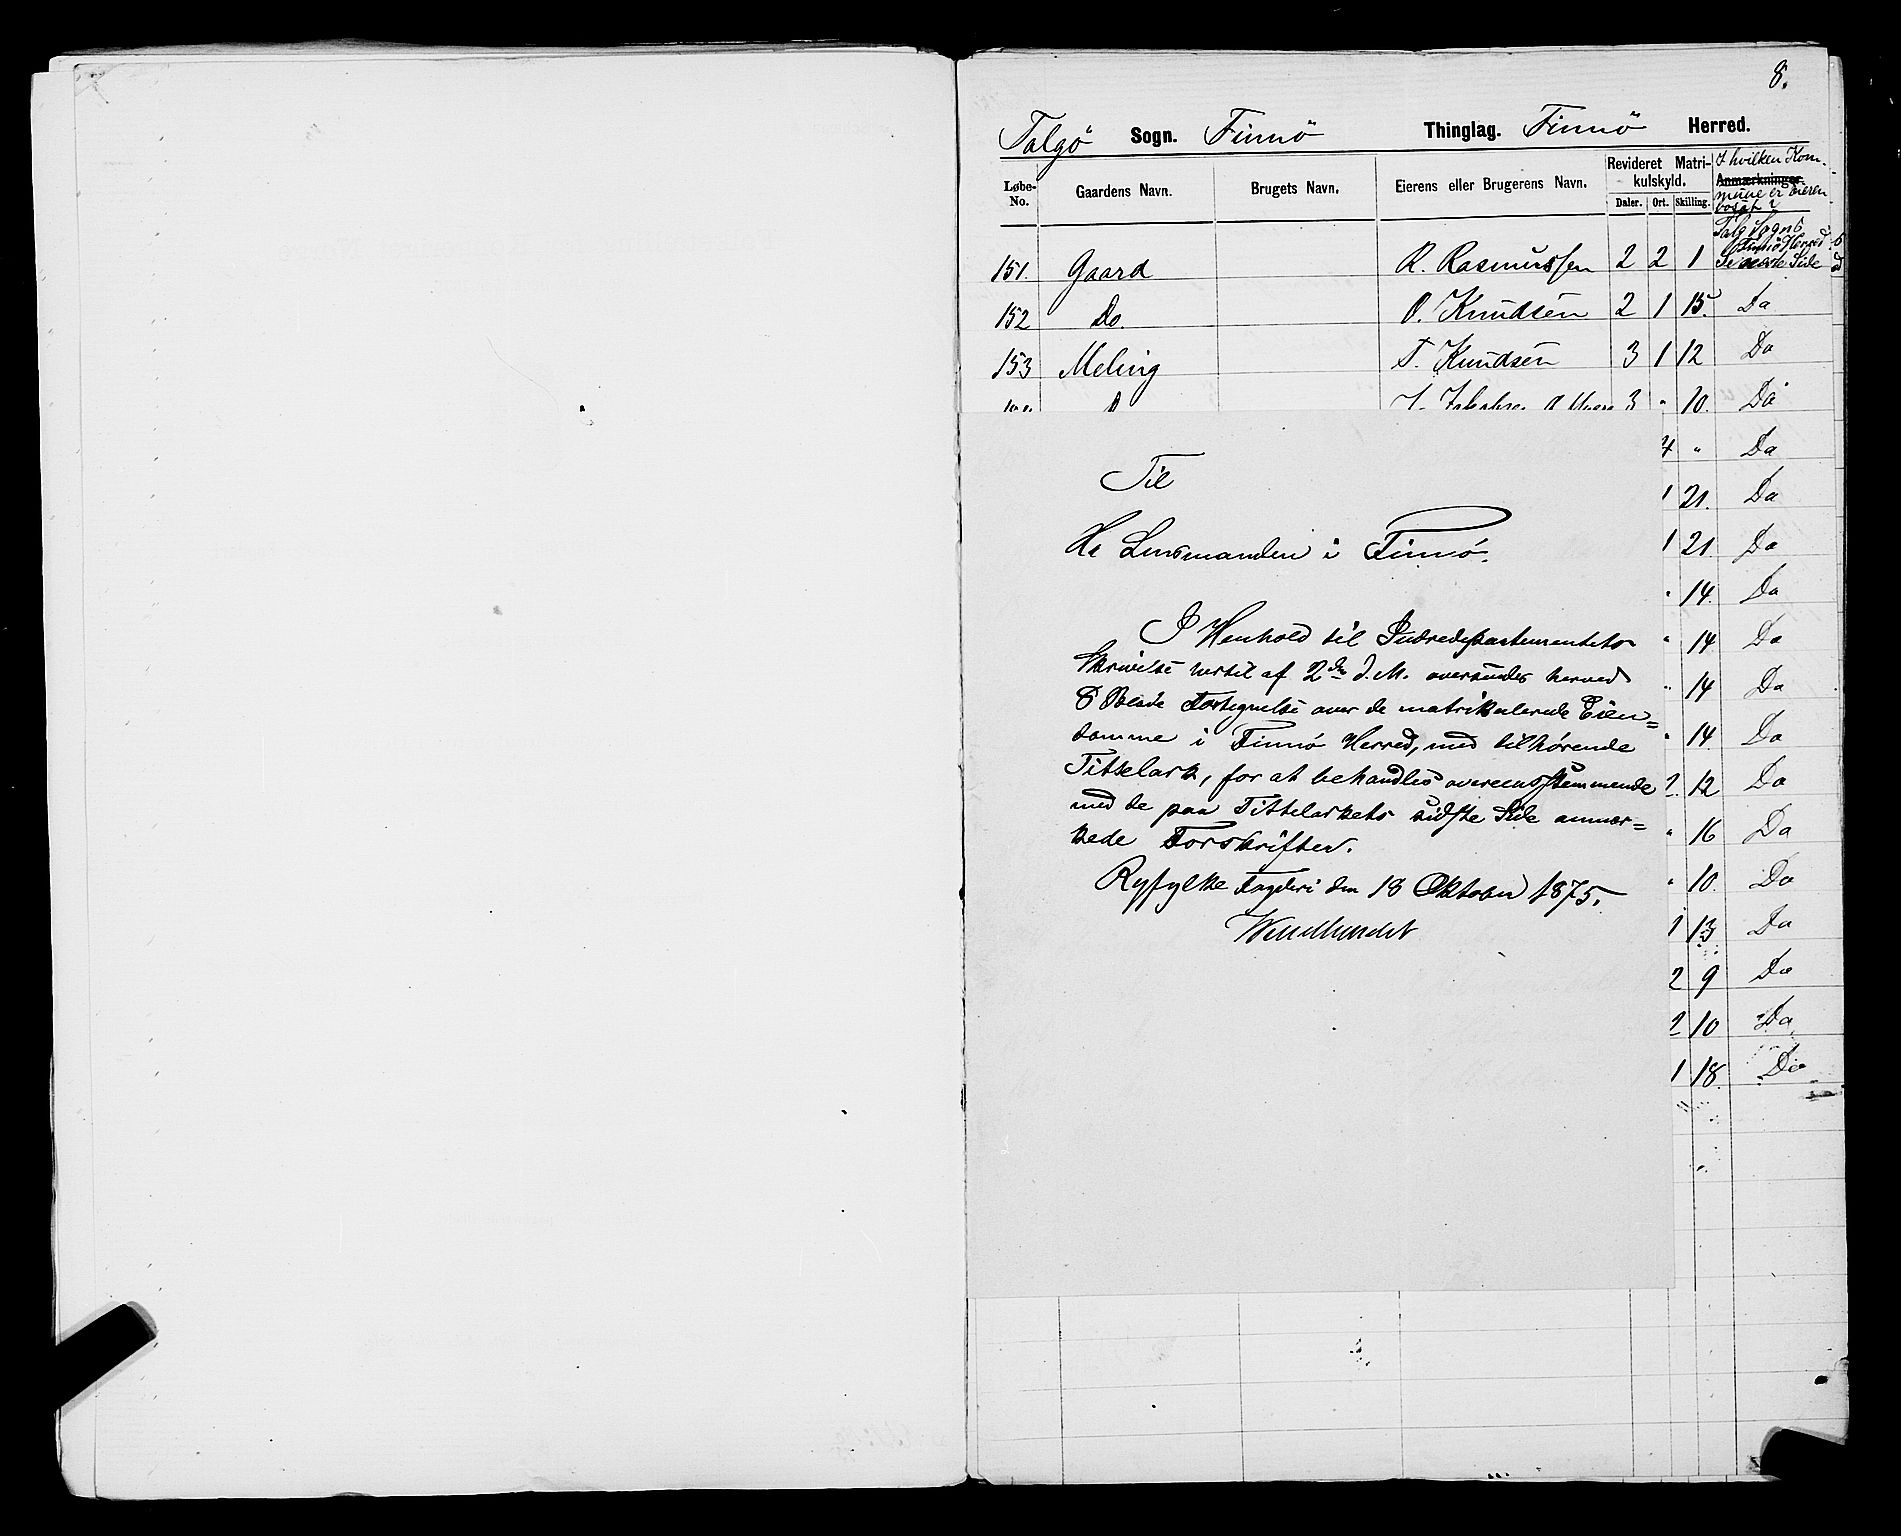 8.
Talgö Sogn. Finnö Thinglag. Finnö Herred.
Løbe-No. Gaardens Navn. Brugets Navn. Eierens eller Brugerens Navn. Revideret Matrikulskyld. Daler. Ort. Skilling. Anmærkninger. I hvilken Kommune er Eieren bosat?
151. Gaard R. Rasmussen 2 2 1 Finnö Herred
152 Do. O. Knudsen 2 1 15. Do
153 Meling T. Knudsen 3 1 12 Do
3 " 10. Do
4 " Do
1 21. Do
1 21. Do
" 14. Do
" 14 Do
" 14 Do
" 14 Do
2. 12 Do
" 16 Do
" 10. Do
1 13 Do
2 9 Do
2 10 Do
1 18. Do
Til
Hr Lensmanden i Finnö.
I Henhold til Indredepartementets
Skrivelse hertil af 2den d. M. oversendes herved
8 Blade Fortegnelse over de matrikulerede Eien=
domme i Finnö Herred, med tilhørende
Tittelark, for at behandles overensstemmende
med de paa Tittelarkets sidste Side anmær=
kede Forskrifter.
Ryfylke Fogderi den 18 Oktober 1875.